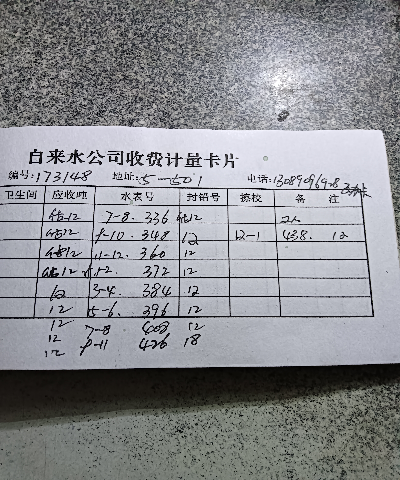 自来水公司收费计量卡片
编号:173148 地址:5-501 电话:130890969
卫生间 应收吨 水表号 封铅号 抹校 备注
估12 7-8. 336 估12 2人
估12 9-10. 348 12 12-1 438. 12
估12 11-12. 360 12
估12 1-2 372 12
12 3-4. 384 12
12 5-6. 396 12
12
12 7-8 408 12
12 9-11 426 18